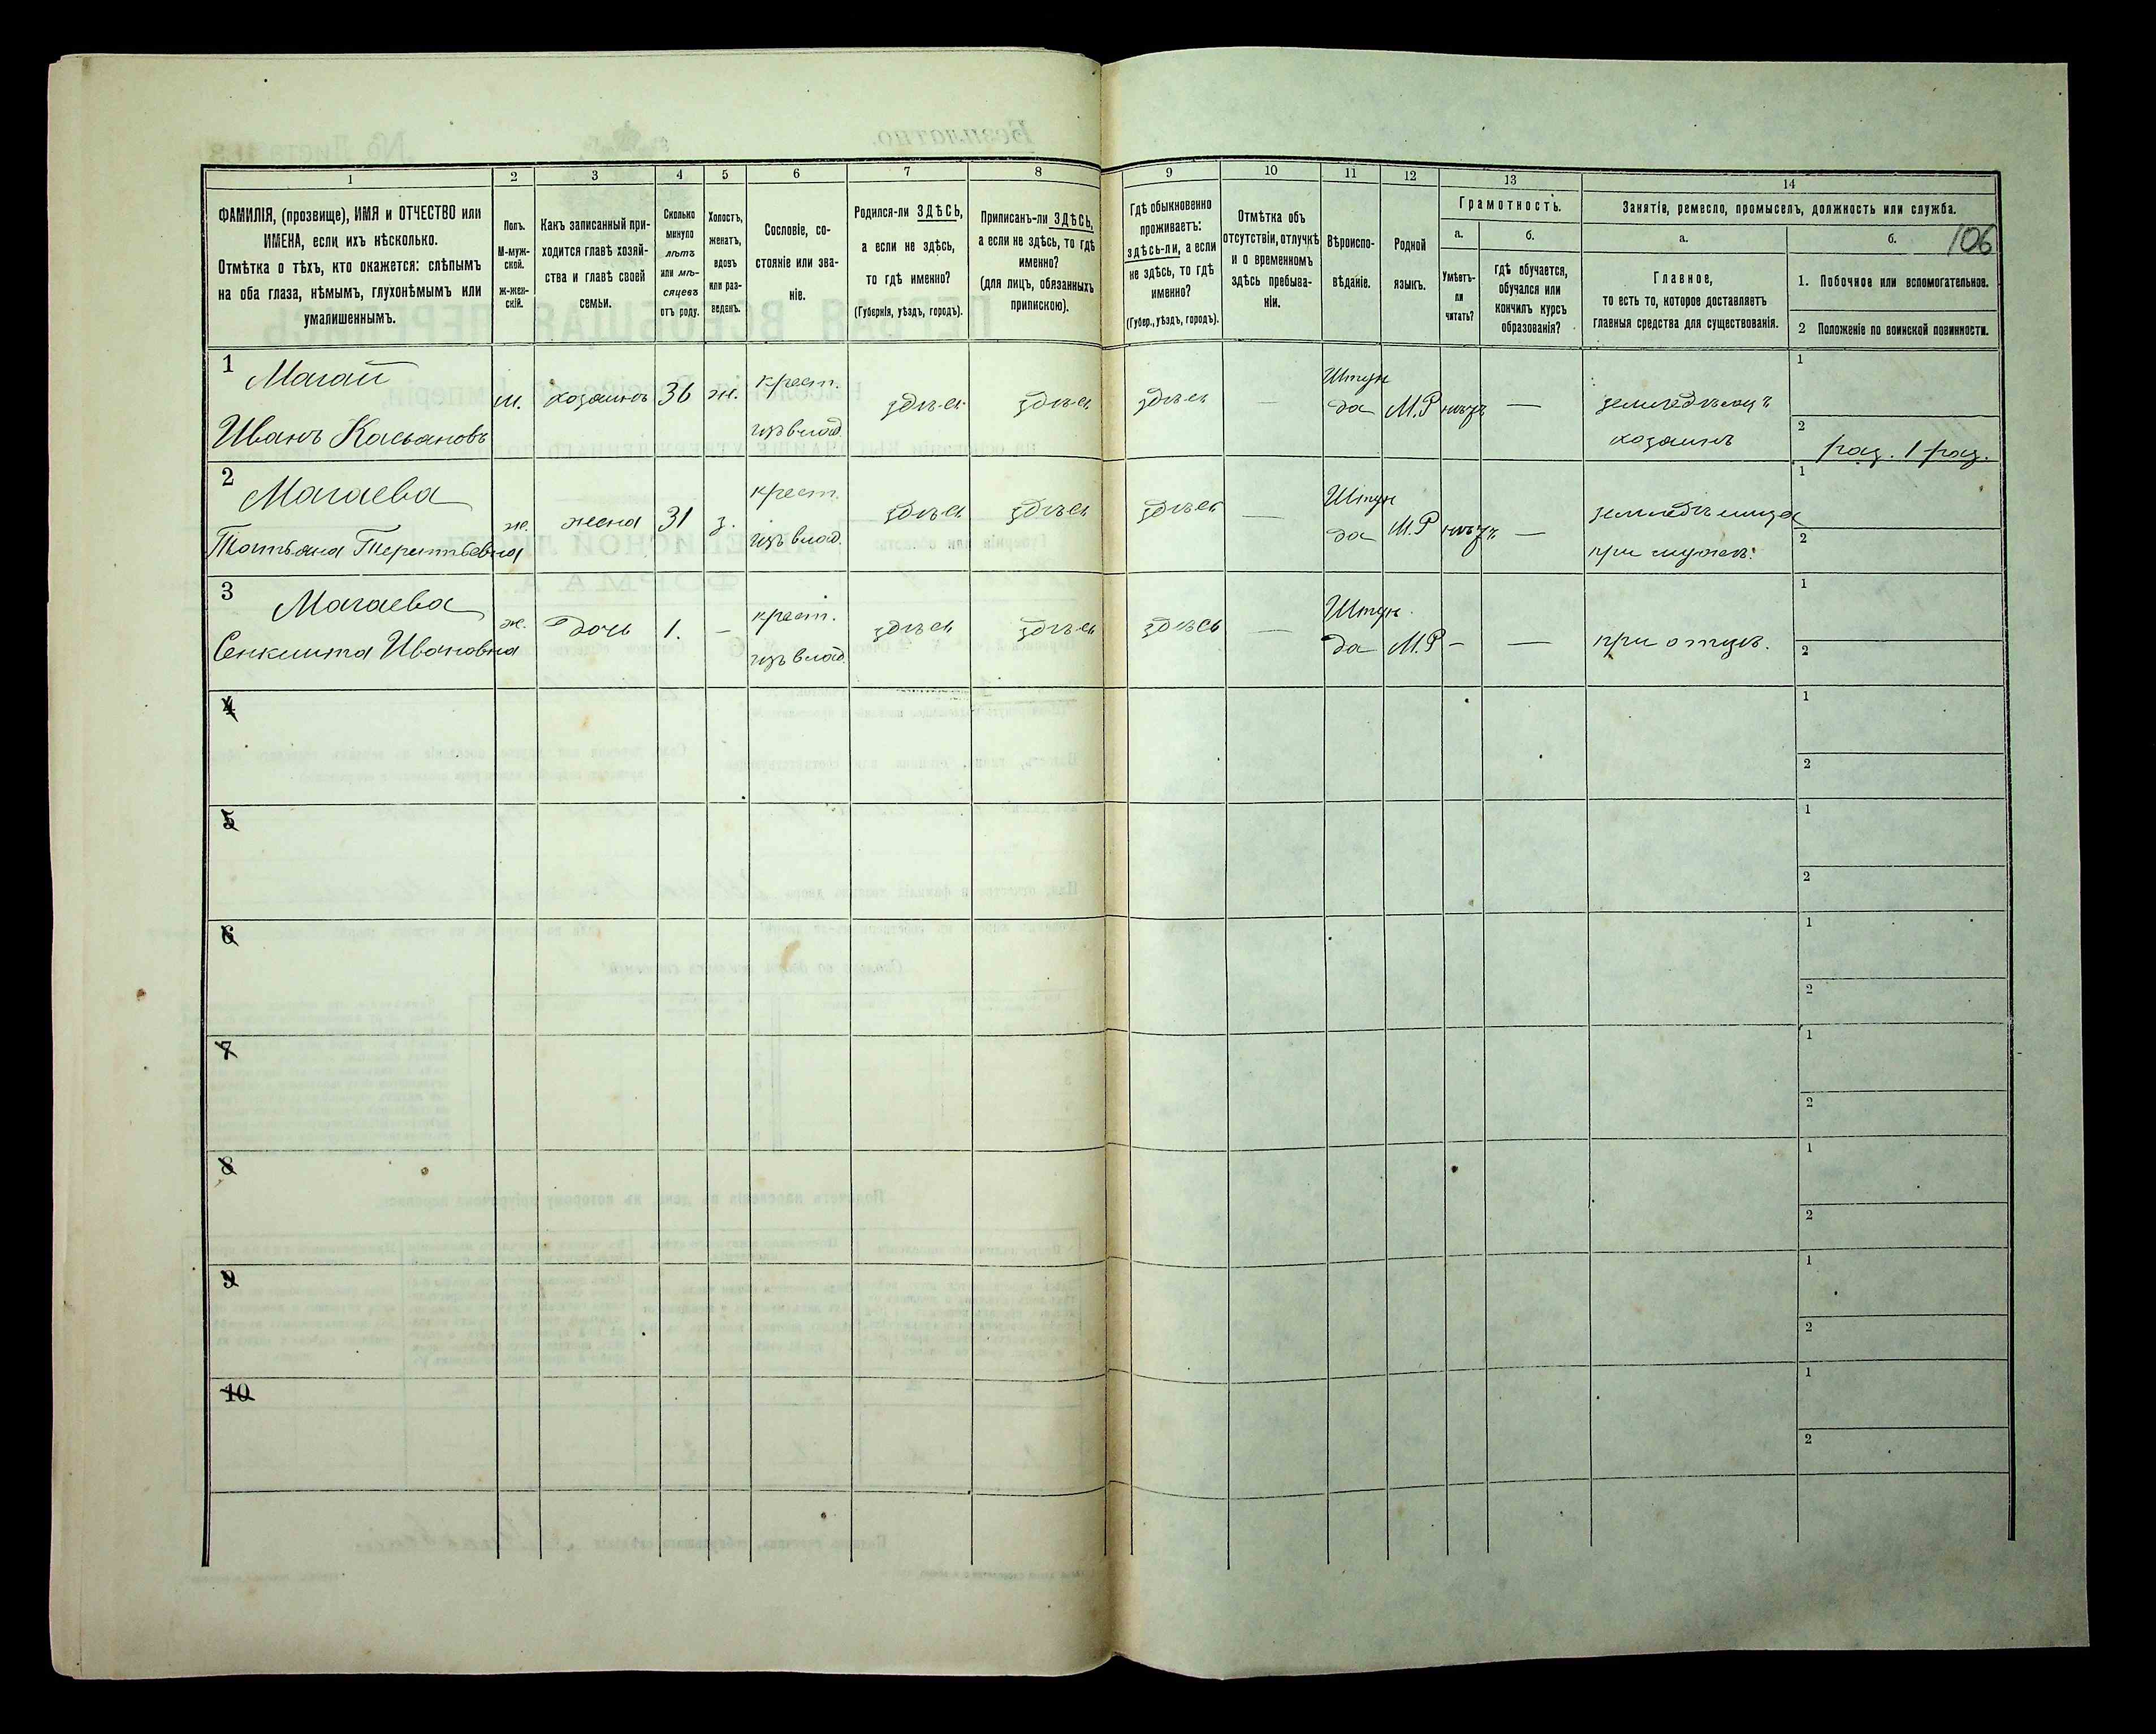 1 2 3 4 5 6 7 8 9 10 11 12 13 14
ФАМИЛІЯ, (прозвище), ИМЯ и ОТЧЕСТВО или
ИМЕНА, если ихъ нѣсколько.
Отмѣтка о тѣхъ, кто окажется: слѣпымъ
на оба глаза, нѣмымъ, глухонѣмымъ или
умалишеннымъ.
Полъ.
М-муж-
ской.
ж-жен-
скій.
Какъ записанный при-
ходится главѣ хозяй-
ства и главѣ своей
семьи.
Сколько
минуло
лѣтъ
или мѣ-
сяцевъ
отъ роду.
Холостъ,
женатъ,
вдовъ
или раз-
веденъ.
Сословіе, со-
стояніе или зва-
ніе.
Родился-ли ЗДѢСЬ,
а если не здѣсь,
то гдѣ именно?
(Губернія, уѣздъ, городъ).
Приписанъ-ли ЗДѢСЬ,
а если не здѣсь, то гдѣ
именно?
(для лицъ, обязанныхъ
припискою).
Гдѣ обыкновенно
проживаетъ:
здѣсь-ли, а если
не здѣсь, то гдѣ
именно?
(Губер., уѣздъ, городъ).
Отмѣтка объ
отсутствіи, отлучкѣ
и о временномъ
здѣсь пребыва-
ніи.
Вѣроиспо-
вѣданіе.
Родной
языкъ.
Грамотность.
а.
Умѣетъ-
ли
читать?
б.
гдѣ обучается,
обучался или
кончилъ курсъ
образованія?
Занятія, ремесло, промыселъ, должность или служба.
а.
Главное,
то есть то, которое доставляетъ
главныя средства для существованія.
б.
106
1. Побочное или вспомогательное.
2 Положеніе по воинской повинности.
1 Магай
Иванъ Касьановъ
м. хозяинъ 36 ж.
крест.
изъ влад.
здѣсь здѣсь здѣсь —
Штун
да М.Р нѣтъ —
земледѣлецъ
хозяинъ
1
2
рат. 1 раз.
2 Магаева
Татьяна Терентьевна
ж. жена 31 з.
крест.
изъ влад.
здѣсь здѣсь здѣсь —
Штун
да М.Р нѣтъ —
земледѣлица
при мужѣ.
1
2
3 Магаева
Сенклита Ивановна
ж. дочь 1. —
крест.
изъ влад.
здѣсь здѣсь здѣсь —
Штун
да М.Р — —
при отцѣ.
1
2
4
1
2
5
1
2
6
1
2
7
1
2
8
1
2
9
1
2
10
1
2